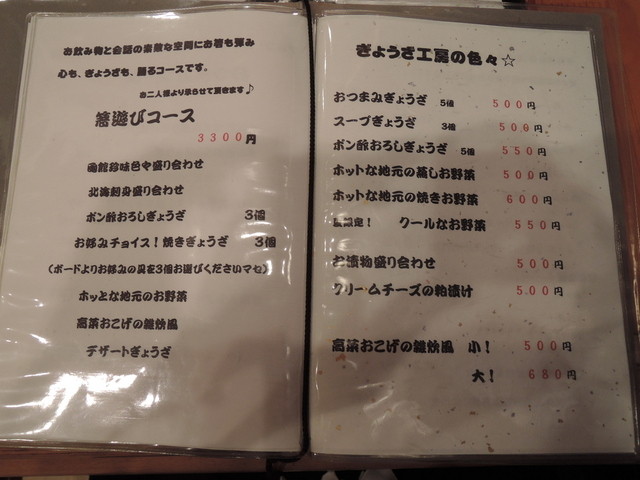 お飲み物と会話の素敵な空間にお箸も弾み
心も、ぎょうざも、踊るコースです。
お二人様より承らせて頂きます♪
箸遊びコース
3300円
函館珍味色や盛り合わせ
北海刺身盛り合わせ
ポン酢おろしぎょうざ 3個
お好みチョイス！焼きぎょうざ 3個
（ボードよりお好みの具を3個お選びくださいマセ）
ホッとな地元のお野菜
高菜おこげの雑炊風
デザートぎょうざ
ぎょうざ工房の色々☆
おつまみぎょうざ 5個 500円
スープぎょうざ 3個 500円
ポン酢おろしぎょうざ 5個 550円
ホットな地元の蒸しお野菜 500円
ホットな地元の焼きお野菜 600円
限定！ クールなお野菜 550円
お漬物盛り合わせ 500円
クリームチーズの粕漬け 500円
高菜おこげの雑炊風 小！ 500円
大！ 680円